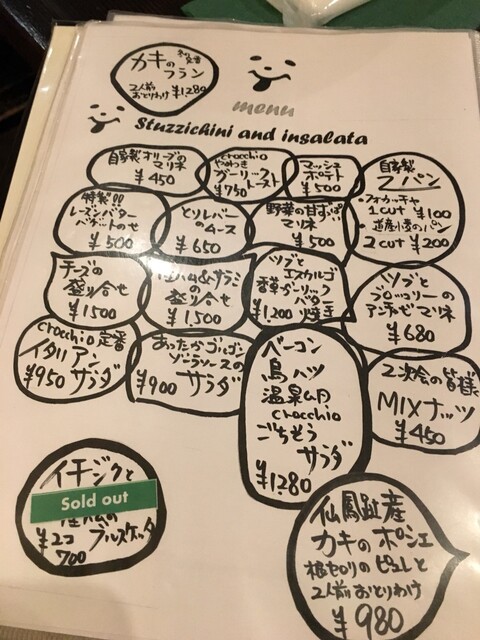 カキの
フラン
2人前
おとりわけ ¥1,280
menu
Stuzzichini and insalata
自家製オリーブの
マリネ
¥450
crocchio
やわらか
ガーリック
トースト
¥750
マッシュ
ポテト
¥500
自家製
パン
・フォカッチャ
1cut ¥100
・道産小麦のパン
2cut ¥200
特製!!
レーズンバター
バゲットのせ
¥500
とりレバー
のムース
¥650
野菜の甘ずっぱ
マリネ
¥500
チーズの
盛り合せ
¥1500
生ハム&サラミ
の
盛り合せ
¥1,500
ツブと
エスカルゴ
香草ガーリック
バター
¥1,200 焼き
ツブと
ブロッコリーの
アンチョビマリネ
¥680
crocchio定番
イタリアン
¥950 サラダ
あったかゴルゴン
ゾーラソースの
¥900 サラダ
ベーコン
鳥ハツ
温泉卵
crocchio
ごちそう
サラダ
¥1,280
2次会の皆様
MIXナッツ
¥450
イチジクと
Sold out
生ハムの
¥2コ ブルスケッタ
700
仙鳳趾産
カキのポシェ
根セロリのピュレと
2人前おとりわけ
¥980